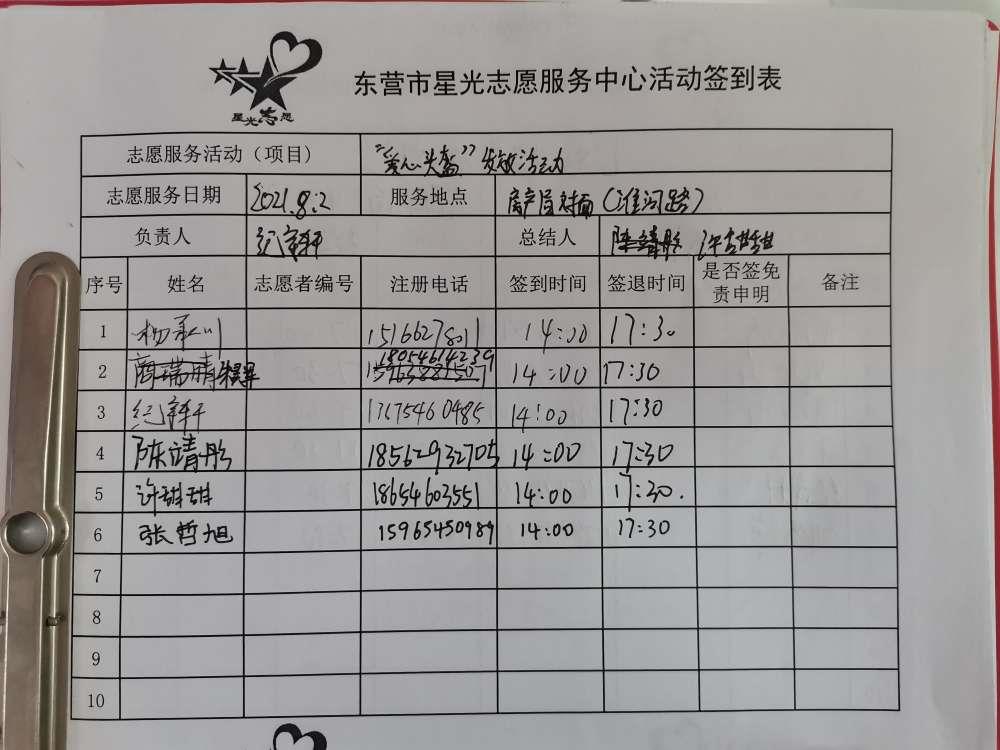 星光志愿
东营市星光志愿服务中心活动签到表
志愿服务活动（项目） “爱心头盔”发放活动
志愿服务日期 2021.8.2 服务地点 房产局对面（淮河路）
负责人 纪宇轩 总结人 陈靖彤 许甜甜
序号 姓名 志愿者编号 注册电话 签到时间 签退时间 是否签免责申明 备注
1 杨承川 15166278011 14:00 17:30
2 商瑞晴 18054614239 14:00 17:30
3 纪宇轩 17675460485 14:00 17:30
4 陈靖彤 18562932705 14:00 17:30
5 许甜甜 18654603551 14:00 17:30.
6 张哲旭 15965450989 14:00 17:30
7
8
9
10